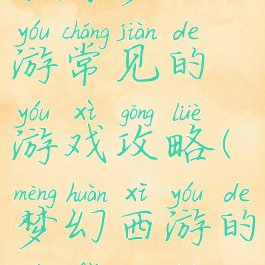 yóu cháng jiàn de
游常见的
yóu xì gōng lüè
游戏攻略(
mèng huàn xī yóu de
梦幻西游的